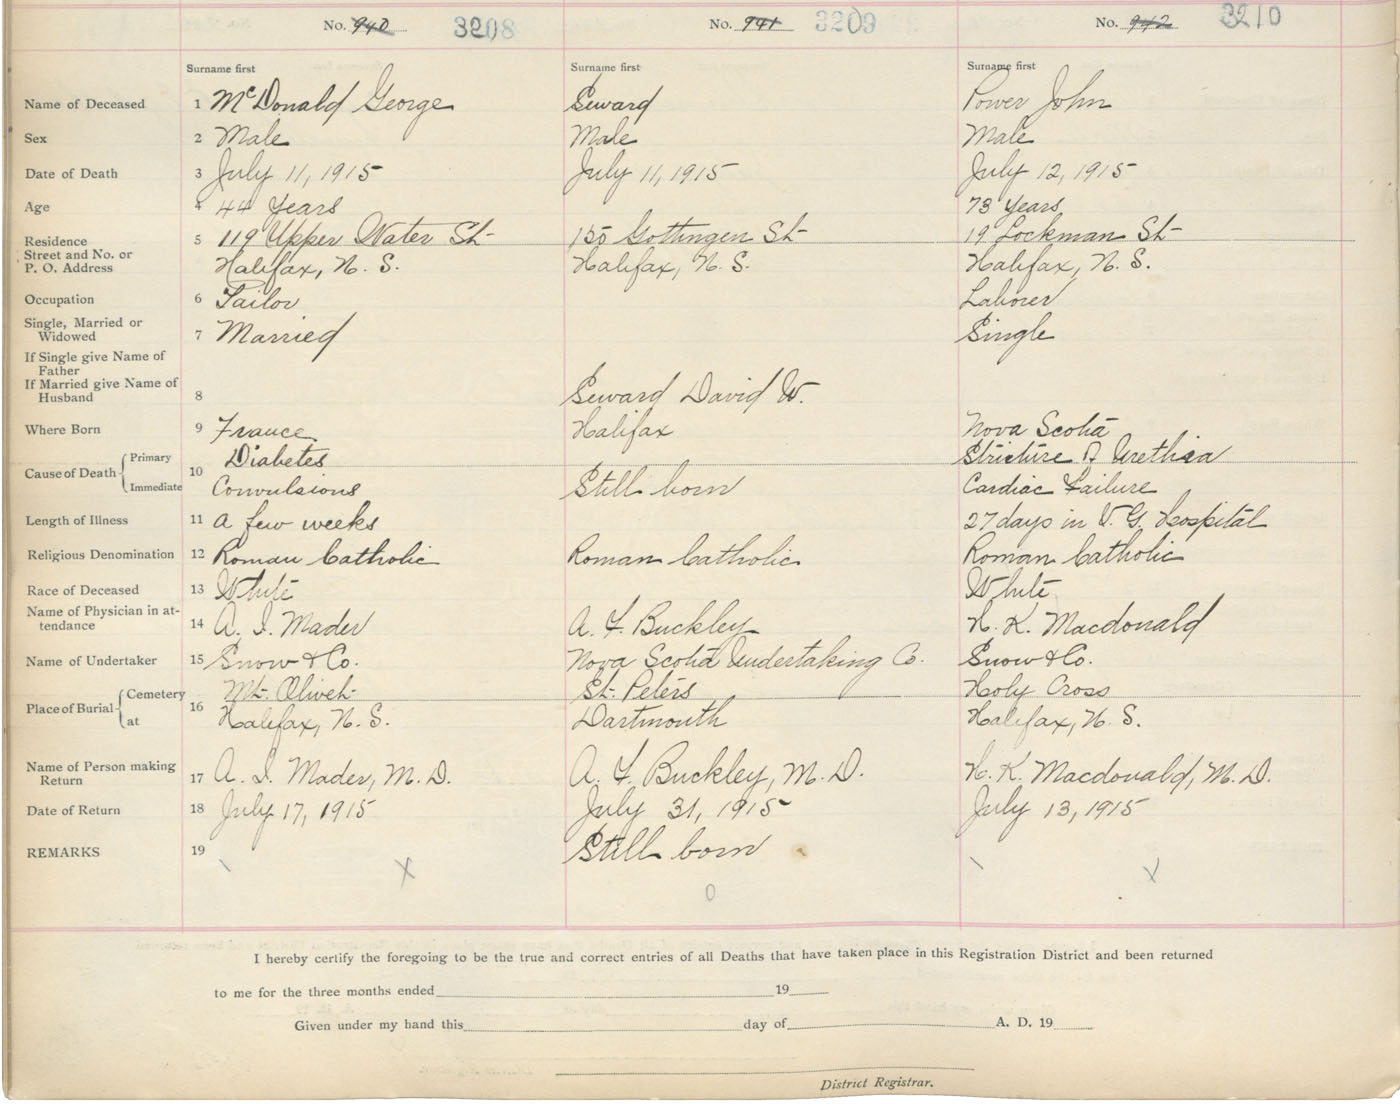 No. 940 3208 No. 941 3209 No. 942 3210
Surname first Surname first Surname first
Name of Deceased 1 McDonald George Seward Power John
Sex 2 Male Male Male
Date of Death 3 July 11, 1915 July 11, 1915 July 12, 1915
Age 4 44 Years 73 Years
Residence 5 119 Upper Water St 150 Gottingen St 19 Lockman St
Street and No. or
P. O. Address Halifax, N. S. Halifax, N. S. Halifax, N. S.
Occupation 6 Tailor Laborer
Single, Married or
Widowed 7 Married Single
If Single give Name of
Father
If Married give Name of
Husband 8 Seward David W.
Where Born 9 France Halifax Nova Scotia
Cause of Death Primary 10 Diabetes Stricture of Urethra
Immediate Convulsions Still born Cardiac Failure
Length of Illness 11 A few weeks 27 days in V. G. Hospital
Religious Denomination 12 Roman Catholic Roman Catholic Roman Catholic
Race of Deceased 13 White White
Name of Physician in at-
tendance 14 A. I. Mader A. F. Buckley H. K. Macdonald
Name of Undertaker 15 Snow & Co. Nova Scotia Undertaking Co. Snow & Co.
Place of Burial Cemetery 16 Mt. Olivet St. Peters Holy Cross
at Halifax, N. S. Dartmouth Halifax, N. S.
Name of Person making
Return 17 A. I. Mader, M. D. A. F. Buckley, M. D. H. K. Macdonald, M. D.
Date of Return 18 July 17, 1915 July 31, 1915 July 13, 1915
REMARKS 19 Still born
\ X 0 \ X
I hereby certify the foregoing to be the true and correct entries of all Deaths that have taken place in this Registration District and been returned
to me for the three months ended 19
Given under my hand this day of A. D. 19
District Registrar.